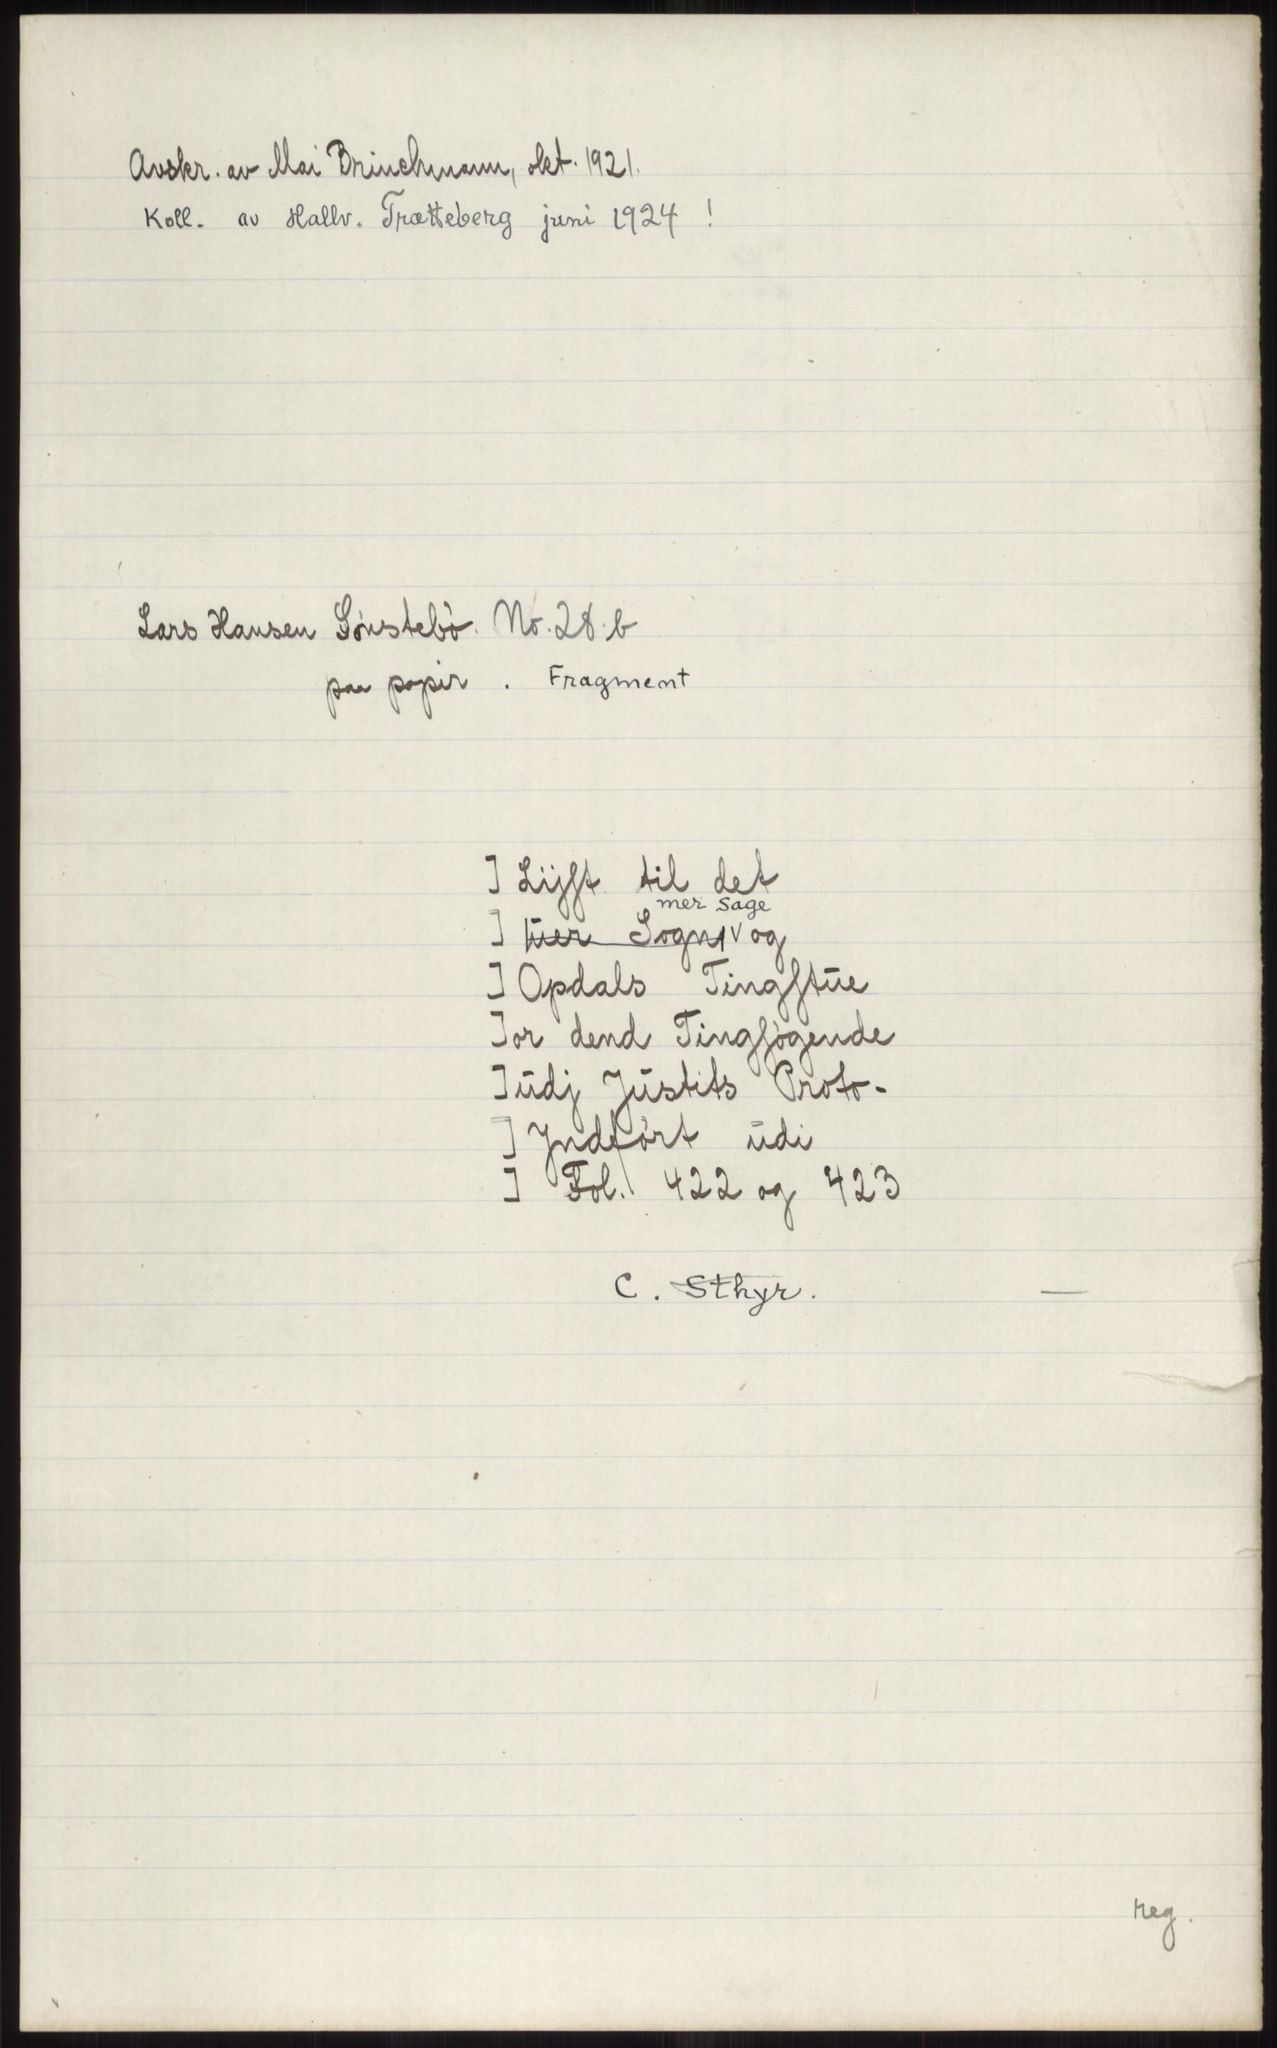 Avskr. av Mai Brinchmann, okt. 1921.
Koll. av Hallv. Trætteberg juni 1924 !
Lars Hansen Sønstebø. No. 28.b
paa papir . Fragment
] Lijft til det
mer sage
] üer Sogn og
] Opdals Tingstüe
] or dend Tingsøgende
] üdj Jüstits Proto-
] Jndført üdi
] Fol. 422 og 423
C. Sthyr. —
reg.